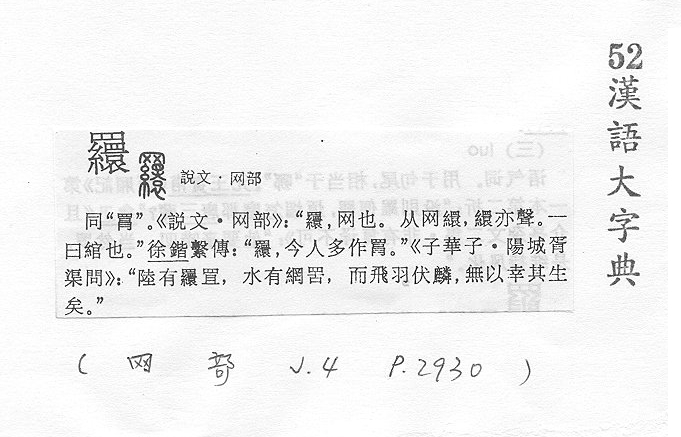 52漢語大字典
說文·网部
同“罥”。《説文·网部》:“,网也。从网繯,繯亦聲。一
曰綰也。”徐鍇繫傳:“,今人多作罥。”《子華子·陽城胥
渠問》:“陸有罝,水有網罟,而飛羽伏麟,無以幸其生
矣。”
( 网 部 V.4 P.2930 )